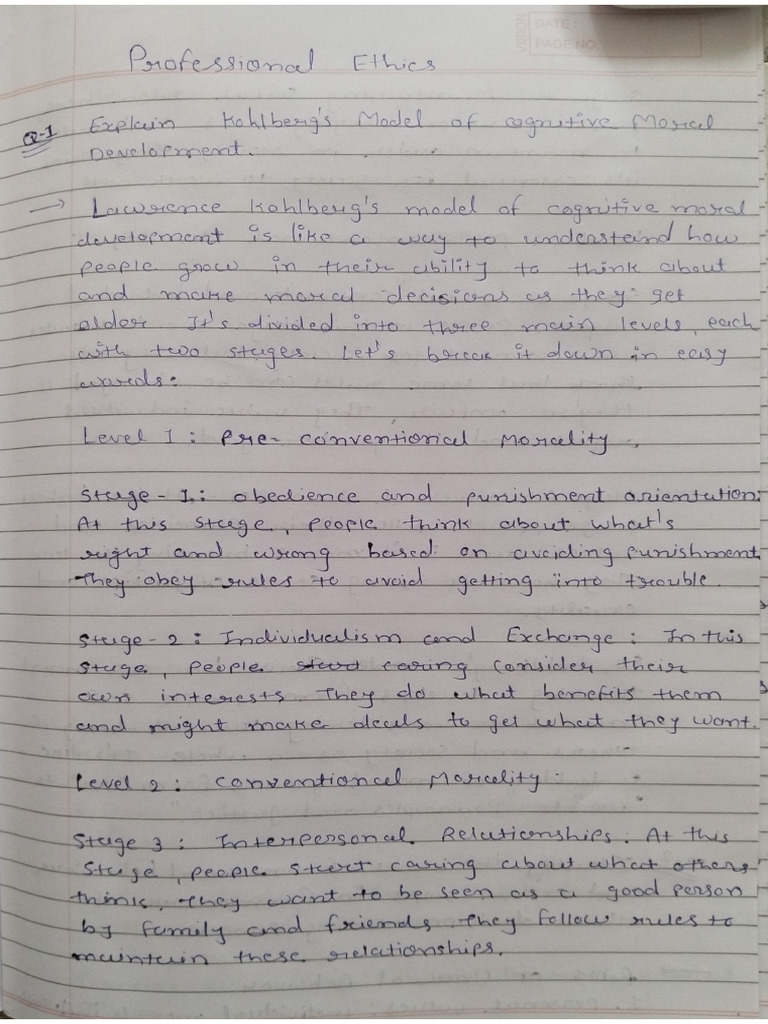 VISION
DATE:
PAGE NO.
Professional Ethics
Q-1 Explain Kohlberg's Model of cognitive Moral
Development.
→ Lawrence Kohlberg's model of cognitive moral
development is like a way to understand how
people grow in their ability to think about
and make moral decisions as they get
older. It's divided into three main levels, each
with two stages. Let's break it down in easy
words:
Level I : Pre- Conventional Morality.
Stage - 1 : obedience and punishment orientation:
At this stage, people think about what's
right and wrong based on avoiding punishment.
They obey rules to avoid getting into trouble.
Stage - 2 : Individualism and Exchange : In this
stage, people start caring consider their
own interests. They do what benefits them
and might make deals to get what they want.
Level 2 : Conventional Morality.
Stage 3 : Interpersonal Relationships. At this
stage, people start caring about what others
think. They want to be seen as a good person
by family and friends. They follow rules to
maintain these relationships.